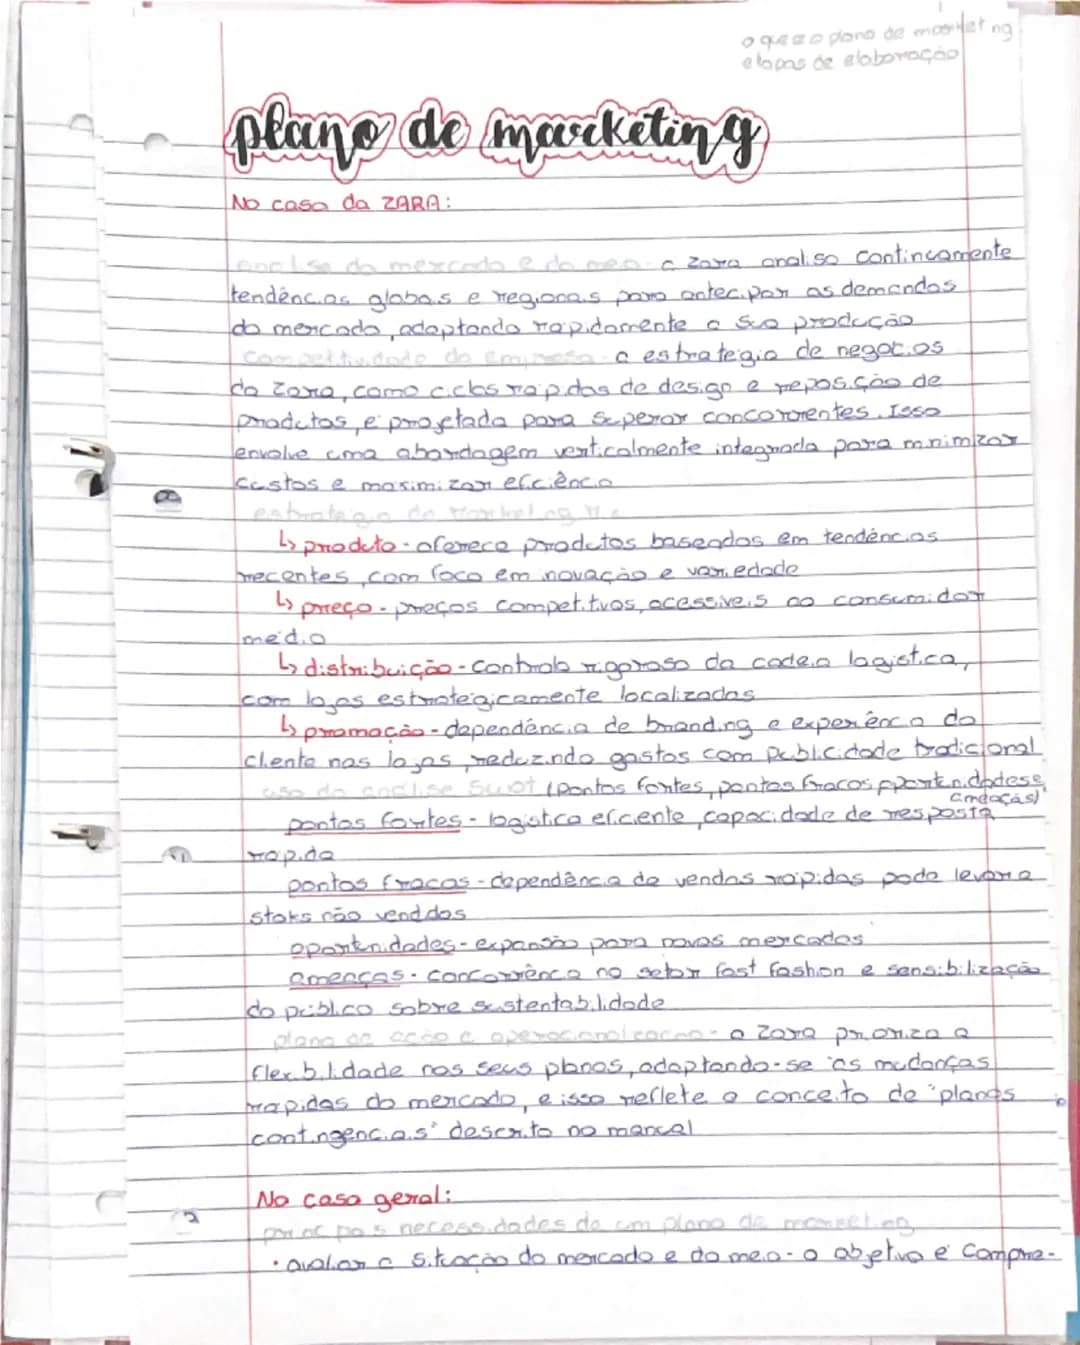 o que é o plano de marketing
etapas de elaboração
plano de marketing
No caso da ZARA:
análise do mercado e do meio - a Zara analisa continuamente
tendências globais e regionais para antecipar as demandas
do mercado, adaptando rapidamente a sua produção
competitividade da empresa - a estratégia de negócios
da Zara, como ciclos rápidos de design e reposição de
produtos, é projetada para superar concorrentes. Isso
envolve uma abordagem verticalmente integrada para minimizar
custos e maximizar eficiência
estratégia de marketing
↳ produto - oferece produtos baseados em tendências
recentes, com foco em inovação e variedade
↳ preço - preços competitivos, acessíveis ao consumidor
médio
↳ distribuição - controlo rigoroso da cadeia logística,
com lojas estrategicamente localizadas
↳ promoção - dependência de branding e experiência do
cliente nas lojas, reduzindo gastos com publicidade tradicional
uso da análise SWOT (pontos fortes, pontos fracos, oportunidades e
ameaças)
pontos fortes - logística eficiente, capacidade de resposta
rápida
pontos fracos - dependência de vendas rápidas pode levar a
stoks não vendidos
oportunidades - expansão para novos mercados
ameaças - concorrência no setor fast fashion e sensibilização
do público sobre sustentabilidade
plano de ação e operacionalização - a Zara prioriza a
flexibilidade nos seus planos, adaptando-se às mudanças
rápidas do mercado, e isso reflete o conceito de "planos
contingenciais" descrito no manual
No caso geral:
principais necessidades de um plano de marketing
• avaliar a situação do mercado e do meio - o objetivo é compre-